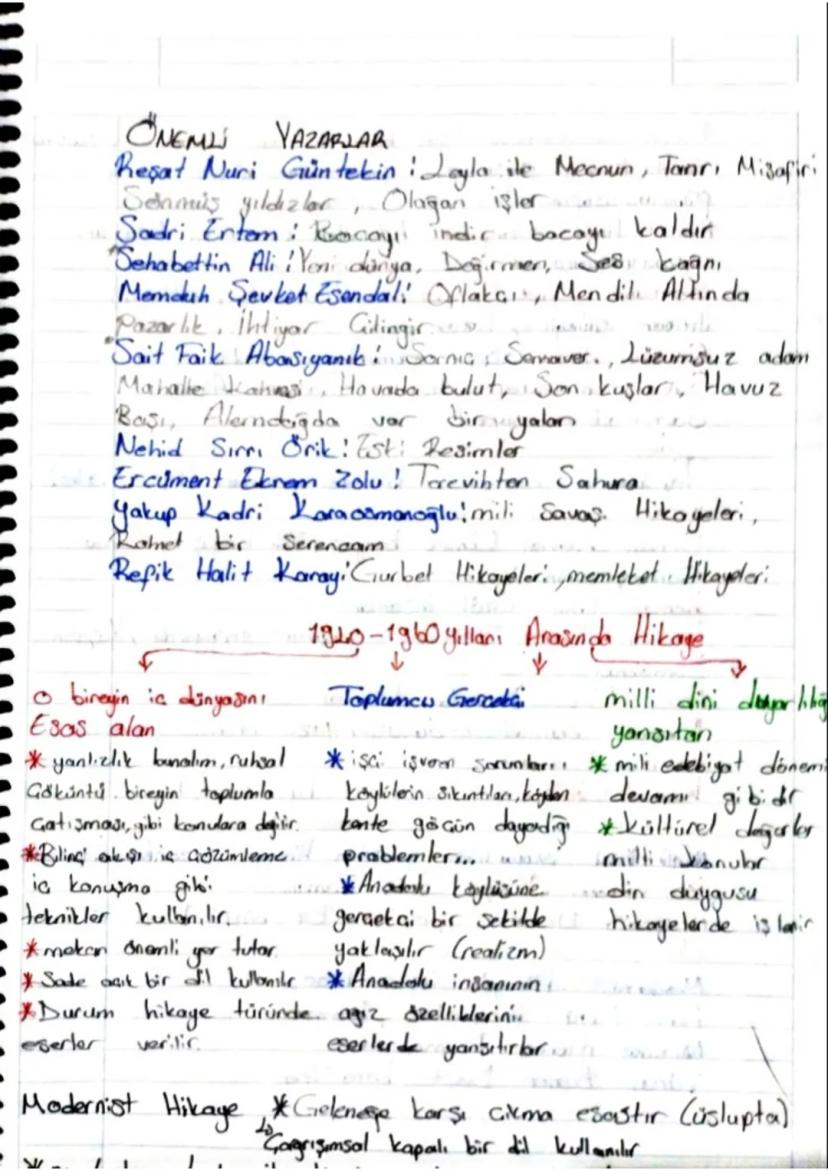 ÖNEMLİ YAZARLAR
Reşat Nuri Güntekin : Leyla ile Mecnun, Tanrı Misafiri
Sönmüş yıldızlar, Olağan işler
Sadri Ertem : Bacayı indir bacayı kaldır
Sehabettin Ali : Yeni dünya, Değirmen, Ses kağnı
Memduh Şevket Esendal : Otlakçı, Mendil Altında
Pazarlık, İhtiyar Çilingir
Sait Faik Abasıyanık : Sarnıç, Semaver, Lüzumsuz adam
Mahalle Kahvesi, Havada bulut, Son kuşlar, Havuz
Başı, Alemdağda var bir yalan
Nehid Sırrı Örik : Eski Resimler
Ercüment Ekrem Zolu : Teravihten Sahura
Yakup Kadri Karaosmanoğlu : mili Savaş Hikayeleri,
Rahmet bir serencam
Refik Halit Karay : Gurbet Hikayeleri, memleket Hikayeleri
1940-1960 yılları Arasında Hikaye
o bireyin iç dünyasını
Esas alan
* yanlızlık bunalım, ruhsal
Çöküntü bireyin toplumla
Çatışması, gibi konulara değinir.
* Bilinç akışı iç çözümleme
iç konuşma gibi
teknikler kullanılır
* mekan önemli yer tutar
* Sade açık bir dil kullanılır
* Durum hikaye türünde
eserler verilir.
Toplumcu Gerçekçi
* işçi işveren sorunları
köylülerin sıkıntıları, köyden
kente göçün dayandığı
problemler...
* Anadolu köylüsüne
gerçekçi bir şekilde
yaklaşılır (realizm)
* Anadolu insanının
ağız özelliklerini
eserlerde yansıtırlar
milli dini duyarlılığı
yansıtan
* mili edebiyat dönemi
devamı gibidir
* Kültürel değerler
milli konular
din duygusu
hikayelerde işlenir
Modernist Hikaye * Geleneğe karşı çıkma esastır (üslupta)
Çağrışımsal kapalı bir dil kullanılır